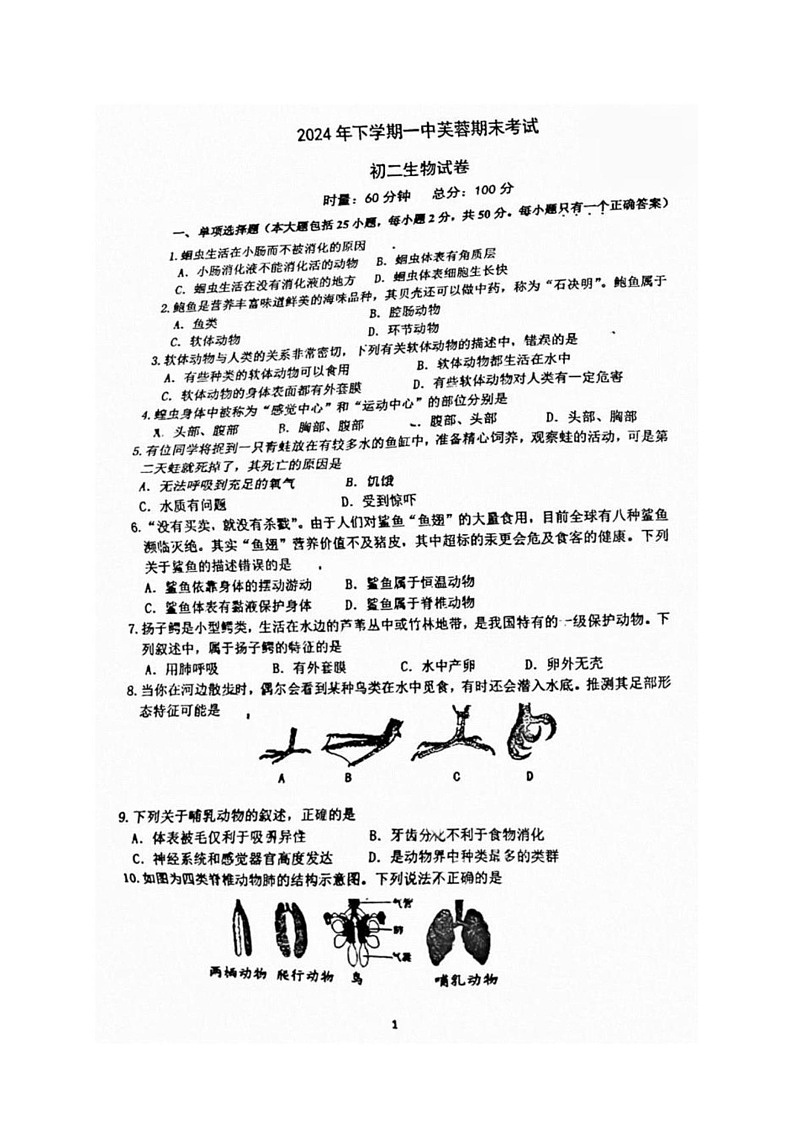 2024年下学期一中芙蓉期末考试
初二生物试卷
时量：60分钟 总分：100分
一、单项选择题（本大题包括25小题，每小题2分，共50分。每小题只有一个正确答案）
1.蛔虫生活在小肠而不被消化的原因
A．小肠消化液不能消化活的动物 B．蛔虫体表有角质层
C．蛔虫生活在没有消化液的地方 D．蛔虫体表细胞生长快
2.鲍鱼是营养丰富味道鲜美的海味品种，其贝壳还可以做中药，称为“石决明”。鲍鱼属于
A．鱼类 B．腔肠动物
C．软体动物 D．环节动物
3.软体动物与人类的关系非常密切，下列有关软体动物的描述中，错误的是
A．有些种类的软体动物可以食用 B．软体动物都生活在水中
C．软体动物的身体表面都有外套膜 D．有些软体动物对人类有一定危害
4.蝗虫身体中被称为“感觉中心”和“运动中心”的部位分别是
A．头部、腹部 B．胸部、腹部 腹部、头部 D．头部、胸部
5.有位同学将捉到一只青蛙放在有较多水的鱼缸中，准备精心饲养，观察蛙的活动，可是第
二天蛙就死掉了，其死亡的原因是
A．无法呼吸到充足的氧气 B．饥饿
C．水质有问题 D．受到惊吓
6.“没有买卖，就没有杀戮”。由于人们对鲨鱼“鱼翅”的大量食用，目前全球有八种鲨鱼
濒临灭绝。其实“鱼翅”营养价值不及猪皮，其中超标的汞更会危及食客的健康。下列
关于鲨鱼的描述错误的是
A．鲨鱼依靠身体的摆动游动 B．鲨鱼属于恒温动物
C．鲨鱼体表有黏液保护身体 D．鲨鱼属于脊椎动物
7.扬子鳄是小型鳄类，生活在水边的芦苇丛中或竹林地带，是我国特有的一级保护动物。下
列叙述中，属于扬子鳄的特征的是
A．用肺呼吸 B．有外套膜 C．水中产卵 D．卵外无壳
8.当你在河边散步时，偶尔会看到某种鸟类在水中觅食，有时还会潜入水底。推测其足部形
态特征可能是
A B C D
9.下列关于哺乳动物的叙述，正确的是
A．体表被毛仅利于吸引异性 B．牙齿分化不利于食物消化
C．神经系统和感觉器官高度发达 D．是动物界中种类最多的类群
10.如图为四类脊椎动物肺的结构示意图。下列说法不正确的是
气管
肺
气囊
两栖动物 爬行动物 鸟 哺乳动物
1